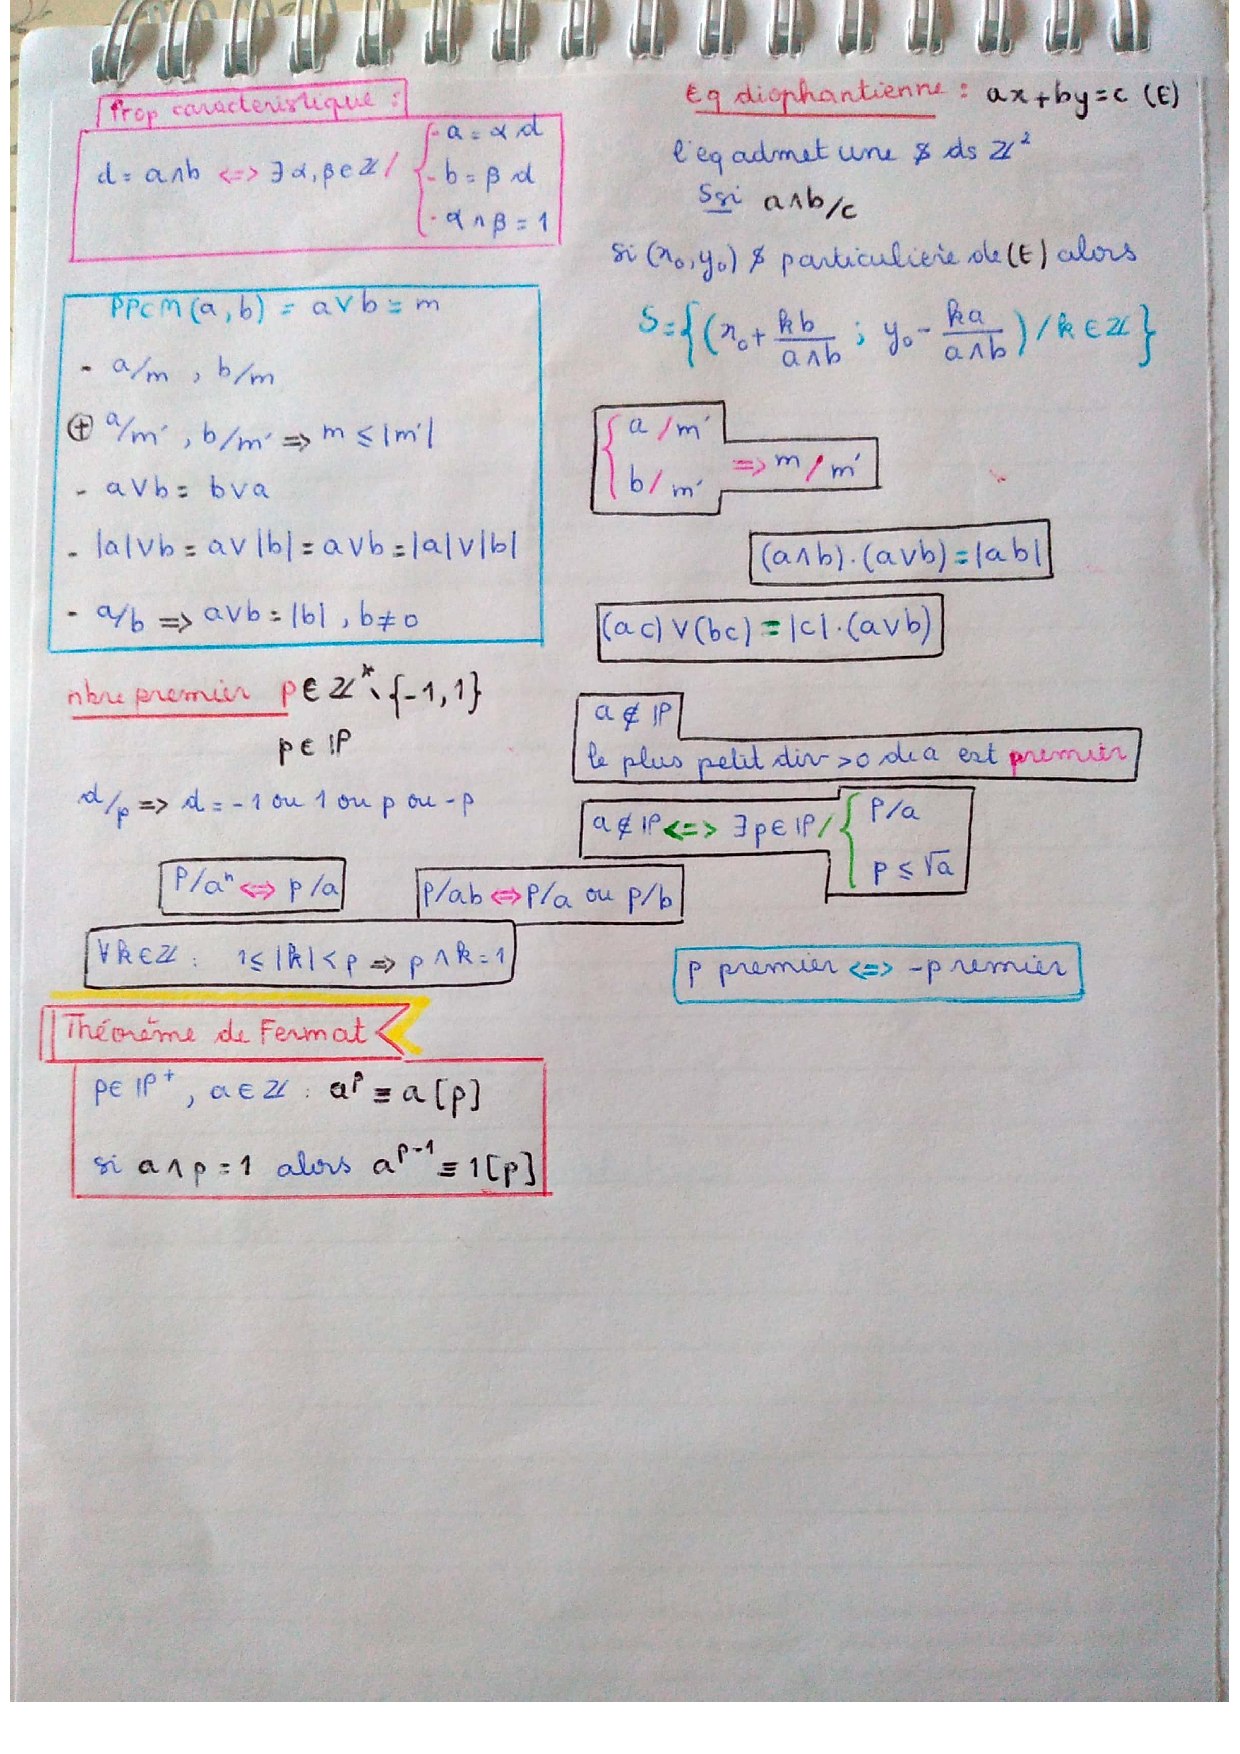 Prop caracteristique :
d = a∧b <=> ∃ α, β ∈ ℤ / { - a = α d
- b = β d
- α ∧ β = 1
PPCM (a, b) = a∨b = m
- a/m , b/m
⊕ a/m' , b/m' => m ≤ |m'|
- a∨b = b∨a
- |a|∨b = a∨|b| = a∨b = |a|∨|b|
- a/b => a∨b = |b| , b≠0
nbre premier p ∈ ℤ* \ {-1, 1}
p ∈ ℙ
d/p => d = -1 ou 1 ou p ou -p
P/aⁿ <=> p/a
P/ab <=> P/a ou P/b
∀ k ∈ ℤ : 1 ≤ |k| < p => p ∧ k = 1
Théorème de Fermat
p ∈ ℙ⁺ , a ∈ ℤ : aᵖ ≡ a [p]
si a ∧ p = 1 alors aᵖ⁻¹ ≡ 1 [p]
Eq diophantienne : ax + by = c (E)
l'eq admet une $ ds ℤ²
Ssi a∧b/c
si (x₀, y₀) $ particulière de (E) alors
S = { (x₀ + kb/a∧b ; y₀ - ka/a∧b) / k ∈ ℤ }
{ a / m'
b / m' => m / m'
(a∧b) . (a∨b) = |ab|
(ac) ∨ (bc) = |c| . (a∨b)
a ∉ ℙ
le plus petit div >0 de a est premier
a ∉ ℙ <=> ∃ p ∈ ℙ / { P/a
p ≤ √a
p premier <=> -p remier